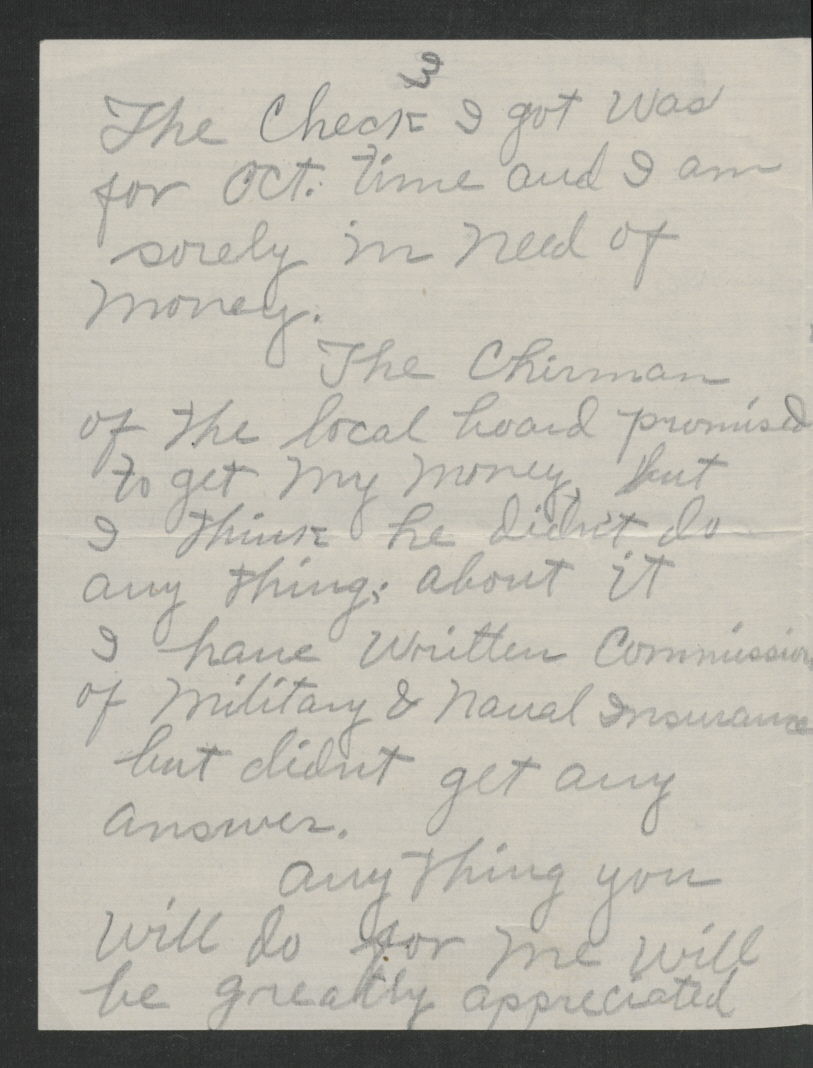 3
The Check I got was
for Oct. time and I am
sorely in need of
money.
The Chirman
of the local board promised
to get my money, but
I think he didn't do
any thing; about it
I have written Commission
of Military & Naval Insurance
but didnt get any
answer.
any thing you
Will do for me will
be greatly appreciated